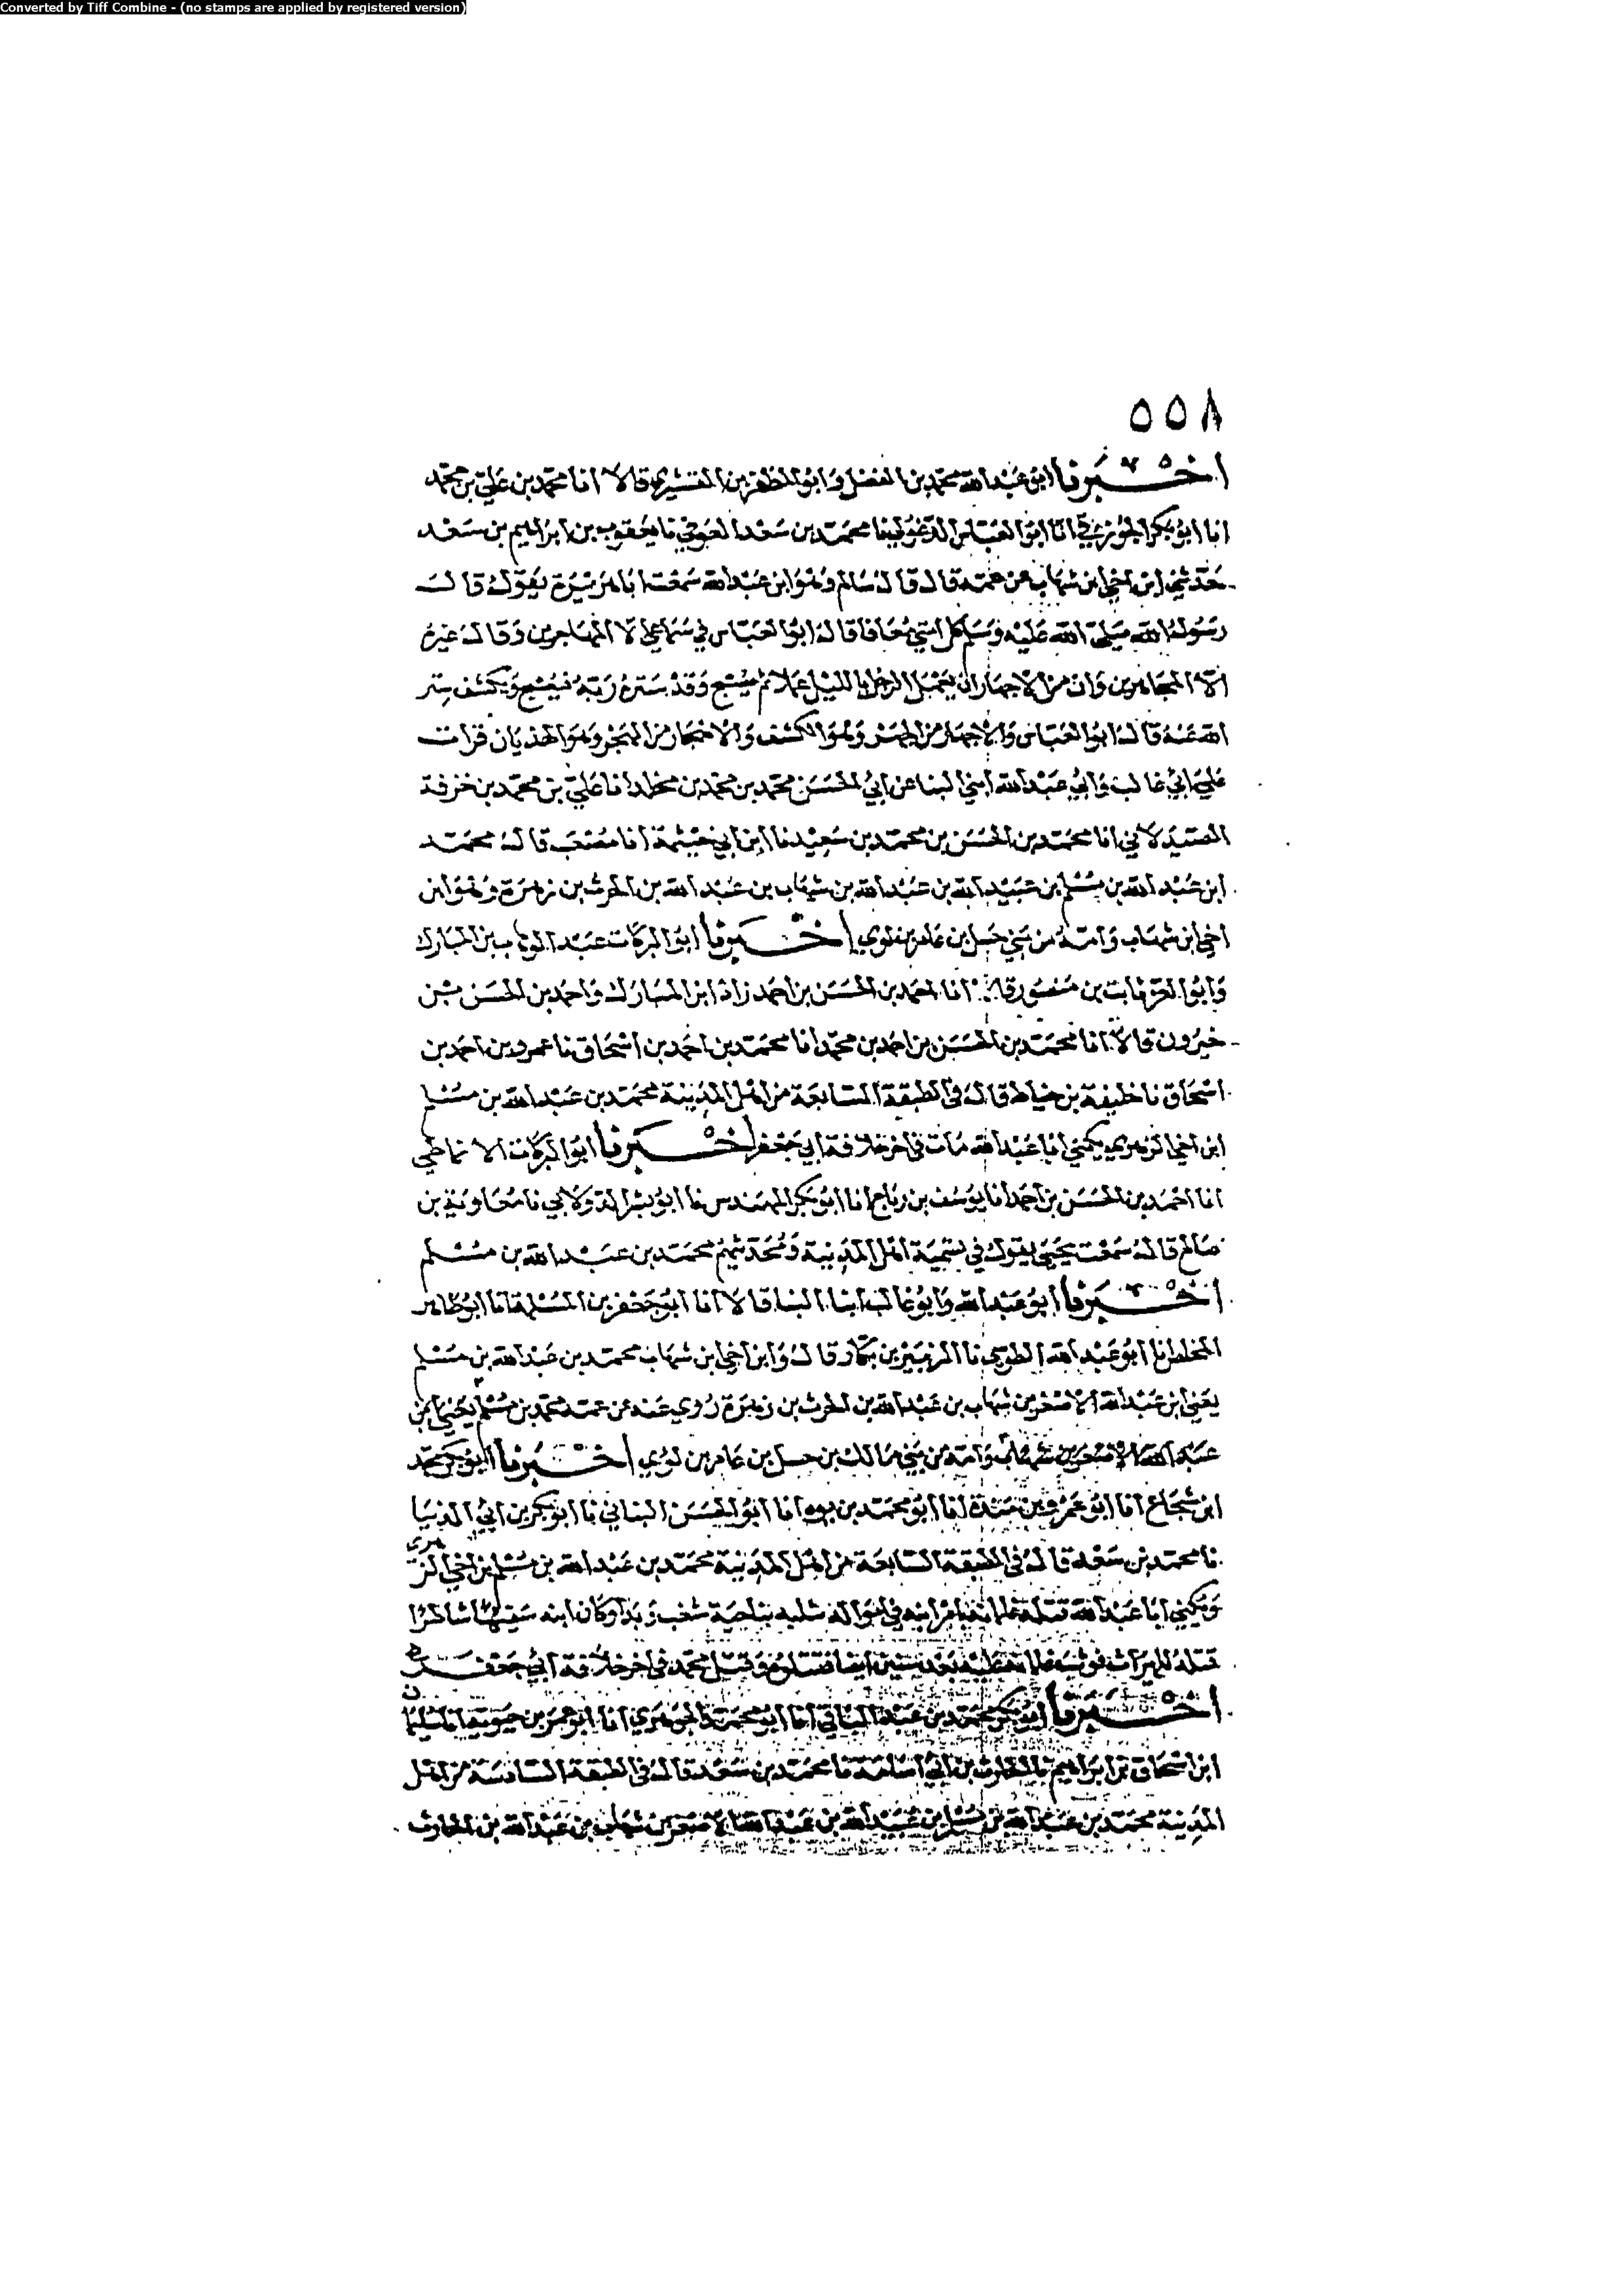 Converted by Tiff Combine - (no stamps are applied by registered version)
٥٥٨
اخبرنا ابو عبد الله محمد بن الفضل وابو المظفر بن القشيري قالا انا محمد بن علي بن محمد
انا ابو بكر الجوزقي انا ابو العباس الدغولي نا محمد بن سعد العوفي نا يعقوب بن ابراهيم بن سعد
حدثني ابن اخي ابن شهاب عن عمه قال قال سالم وهو ابن عبد الله سمعت ابا هريرة يقول قال
رسول الله صلى الله عليه وسلم كل امتي معافا قال ابو العباس في سماعي الا المهاجرين وقال غيره
الا المجاهرين وان من الاجهار ان يعمل الرجل بالليل عملا ثم يصبح وقد ستره ربه فيصبح ويكشف ستر
الله عنه قال ابو العباس والاجهار من الجهر وهو الكشف والاهجار من الهجر وهو الهذيان قرات
على ابي غالب وابي عبد الله ابني البنا عن ابي الحسن محمد بن محمد بن مخلد انا علي بن محمد بن خزفة
الصيدلاني انا محمد بن الحسن بن محمد بن سعيد نا ابن ابي خيثمة انا مصعب قال محمد
ابن عبد الله بن مسلم بن عبيد الله بن عبد الله بن شهاب بن عبد الله بن الحرث بن زهرة وهو ابن
اخي ابن شهاب وامه من بني حسل بن عامر بن لوي اخبرنا ابو البركات عبد الوهاب بن المبارك
وابو العز ثابت بن منصور قالا انا احمد بن الحسن بن احمد زاد ابن المبارك واحمد بن الحسن بن
خيرون قالا انا محمد بن الحسن بن احمد بن محمد انا محمد بن احمد بن اسحاق نا عمرو بن احمد بن
اسحاق نا خليفة بن خياط قال في الطبقة السابعة من اهل المدينة محمد بن عبد الله بن مسلم
ابن اخي الزهري يكنى ابا عبد الله مات في اخر خلافة ابي جعفر اخبرنا ابو البركات الانماطي
انا احمد بن الحسن بن احمد انا يوسف بن رباح انا ابو بكر المهندس نا ابو بشر الدولابي نا معاوية بن
صالح قال سمعت يحيى يقول في تسمية اهل المدينة ومحدثيهم محمد بن عبد الله بن مسلم
اخبرنا ابو عبد الله وابو غالب ابنا البنا قالا انا ابو جعفر بن المسلمة انا ابو طاهر
المخلص نا ابو عبد الله الطوسي نا الزبير بن بكار قال وابن اخي ابن شهاب محمد بن عبد الله بن مسلم
يعني ابن عبد الله الاصغر بن شهاب بن عبد الله بن الحرث بن زهرة روي عنه عن عمه محمد بن مسلم يعني ابن
عبد الله الاصغر بن شهاب وامه من بني مالك بن حسل بن عامر بن لوي اخبرنا ابو بكر محمد
ابن شجاع انا ابو عمرو بن مندة انا ابو محمد بن يوه انا ابو الحسن اللبناني نا ابو بكر بن ابي الدنيا
نا محمد بن سعد قال في الطبقة السابعة من اهل المدينة محمد بن عبد الله بن مسلم بن اخي الزهري
ويكنى ابا عبد الله قتله غلمانه بامر ابنه في امواله بناحية شغب وبدا وكان ابنه سفيها شاطرا
قتله للميراث فوثب غلمانه عليه بعد سنين ايضا فقتلوه وقتل محمد في اخر خلافة ابي جعفر
اخبرنا ابو بكر محمد بن عبد الباقي انا ابو محمد الجوهري انا ابو عمر بن حيوية انا سليمان
ابن اسحاق بن ابراهيم نا الحارث بن ابي اسامة نا محمد بن سعد قال في الطبقة السادسة من اهل
المدينة محمد بن عبد الله بن مسلم بن عبيد الله بن عبد الله الاصغر بن شهاب بن عبد الله بن الحارث